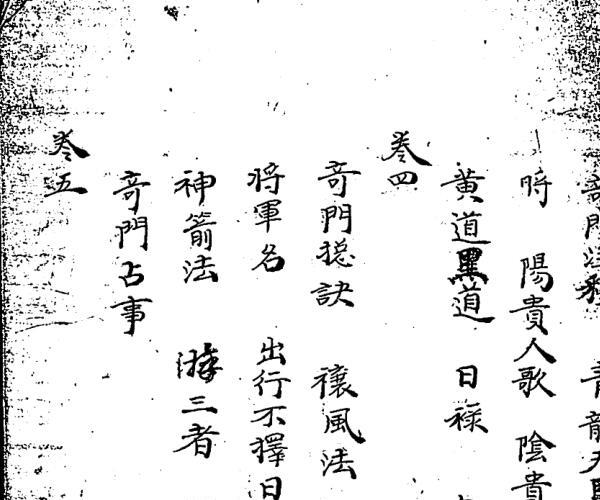 奇門
時　陽貴人歌　陰貴
黄道黑道　日祿
卷四
奇門　訣　禳風法
將軍名　出行不擇日
神箭法　三者
奇門占事
卷五